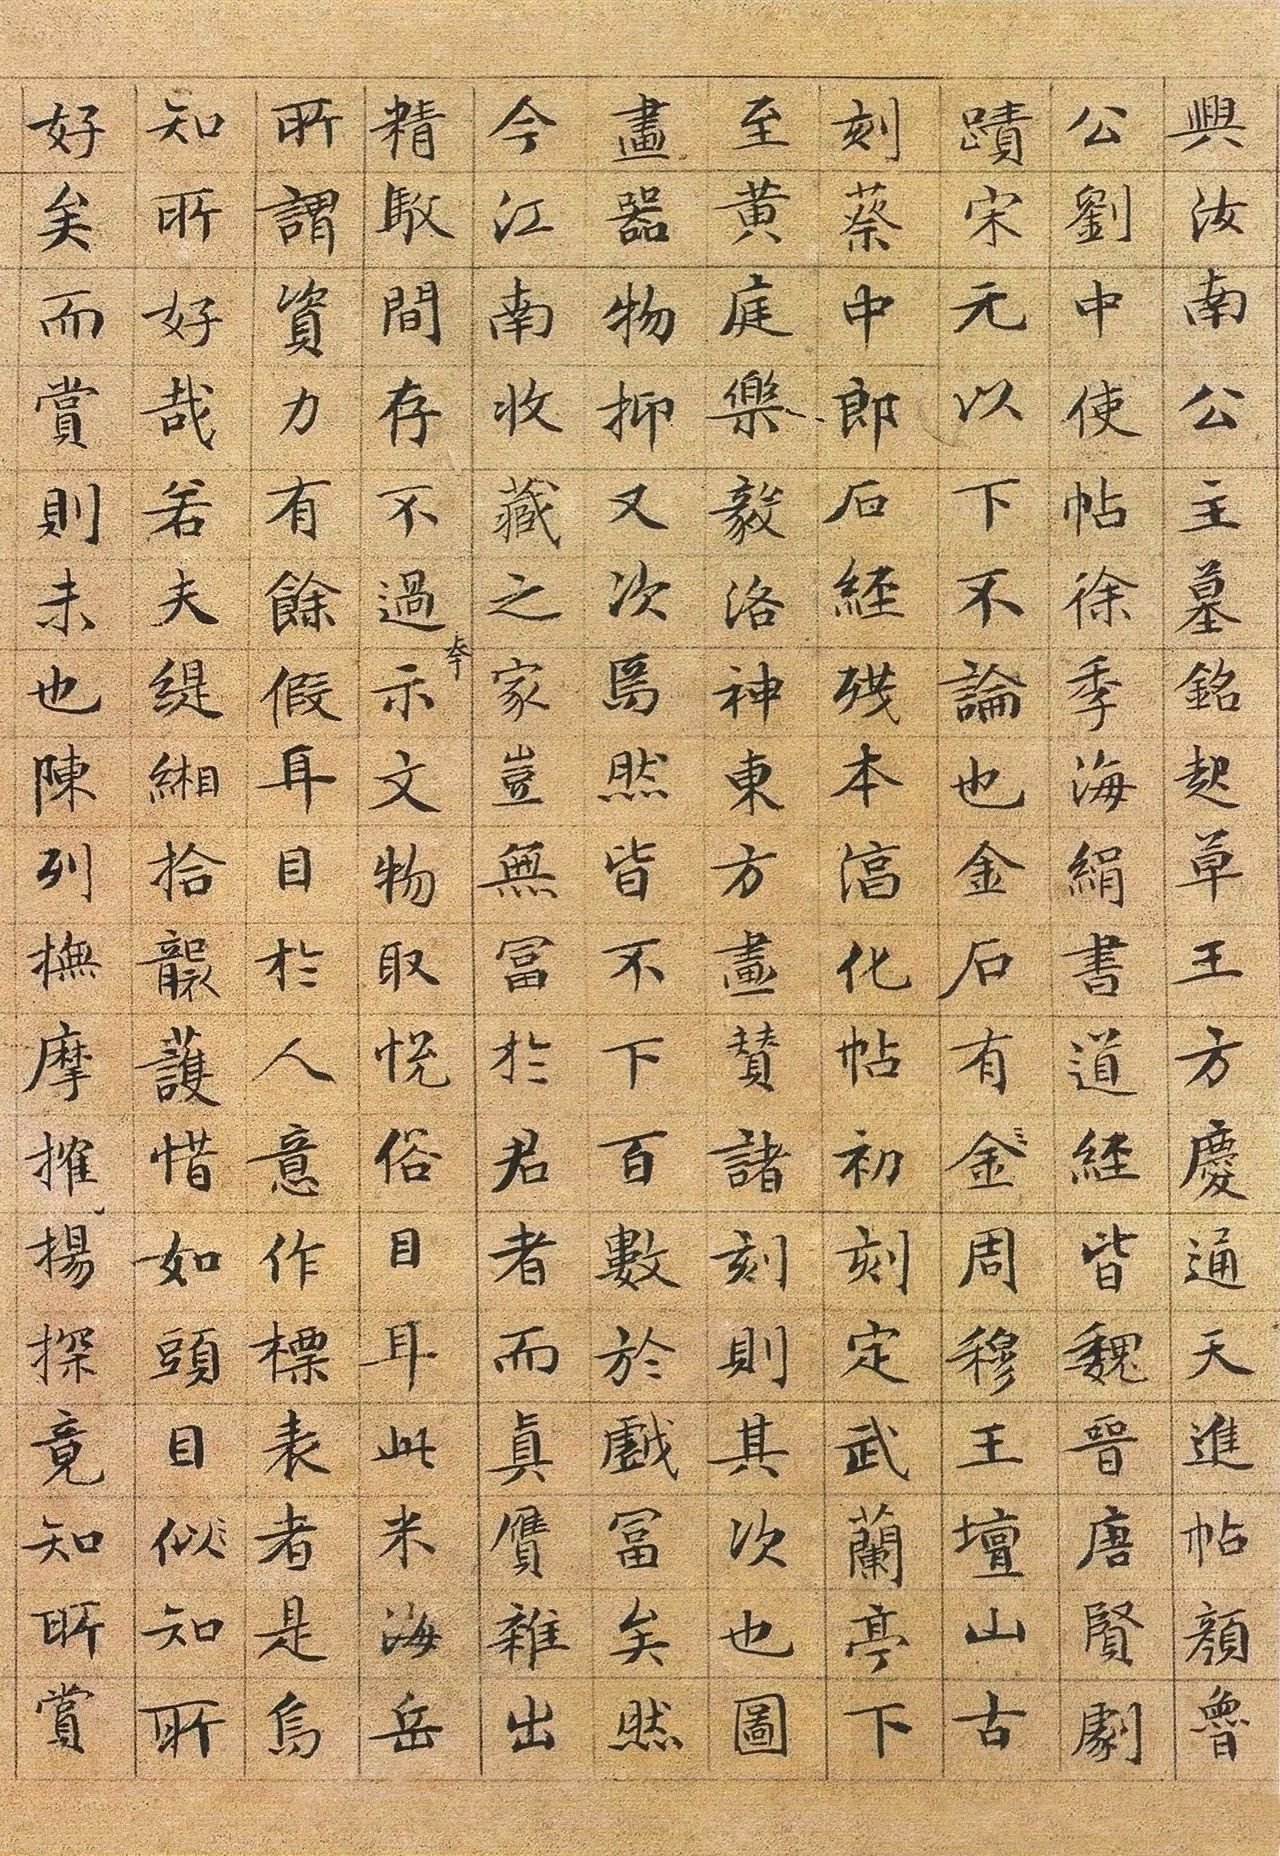 興汝南公主墓銘起草王方慶通天進帖顏魯
公劉中使帖徐季海絹書道經皆魏晉唐賢劇
蹟宋元以下不論也金石有金周穆王壇山古
刻蔡中郎石經殘本淳化帖初刻定武蘭亭下
至黃庭樂毅洛神東方畫贊諸刻則其次也圖
畫器物抑又次焉然皆不下百數於戲富矣然
今江南收藏之家豈無冨於君者而真贋雜出
精駁間存不過夸示文物取悅俗目耳此米海岳
所謂資力有餘假耳目於人意作標表者是烏
知所好哉若夫緹緗拾襲護惜如頭目似知所
好矣而賞則未也陳列撫摩搉揚探竟知所賞